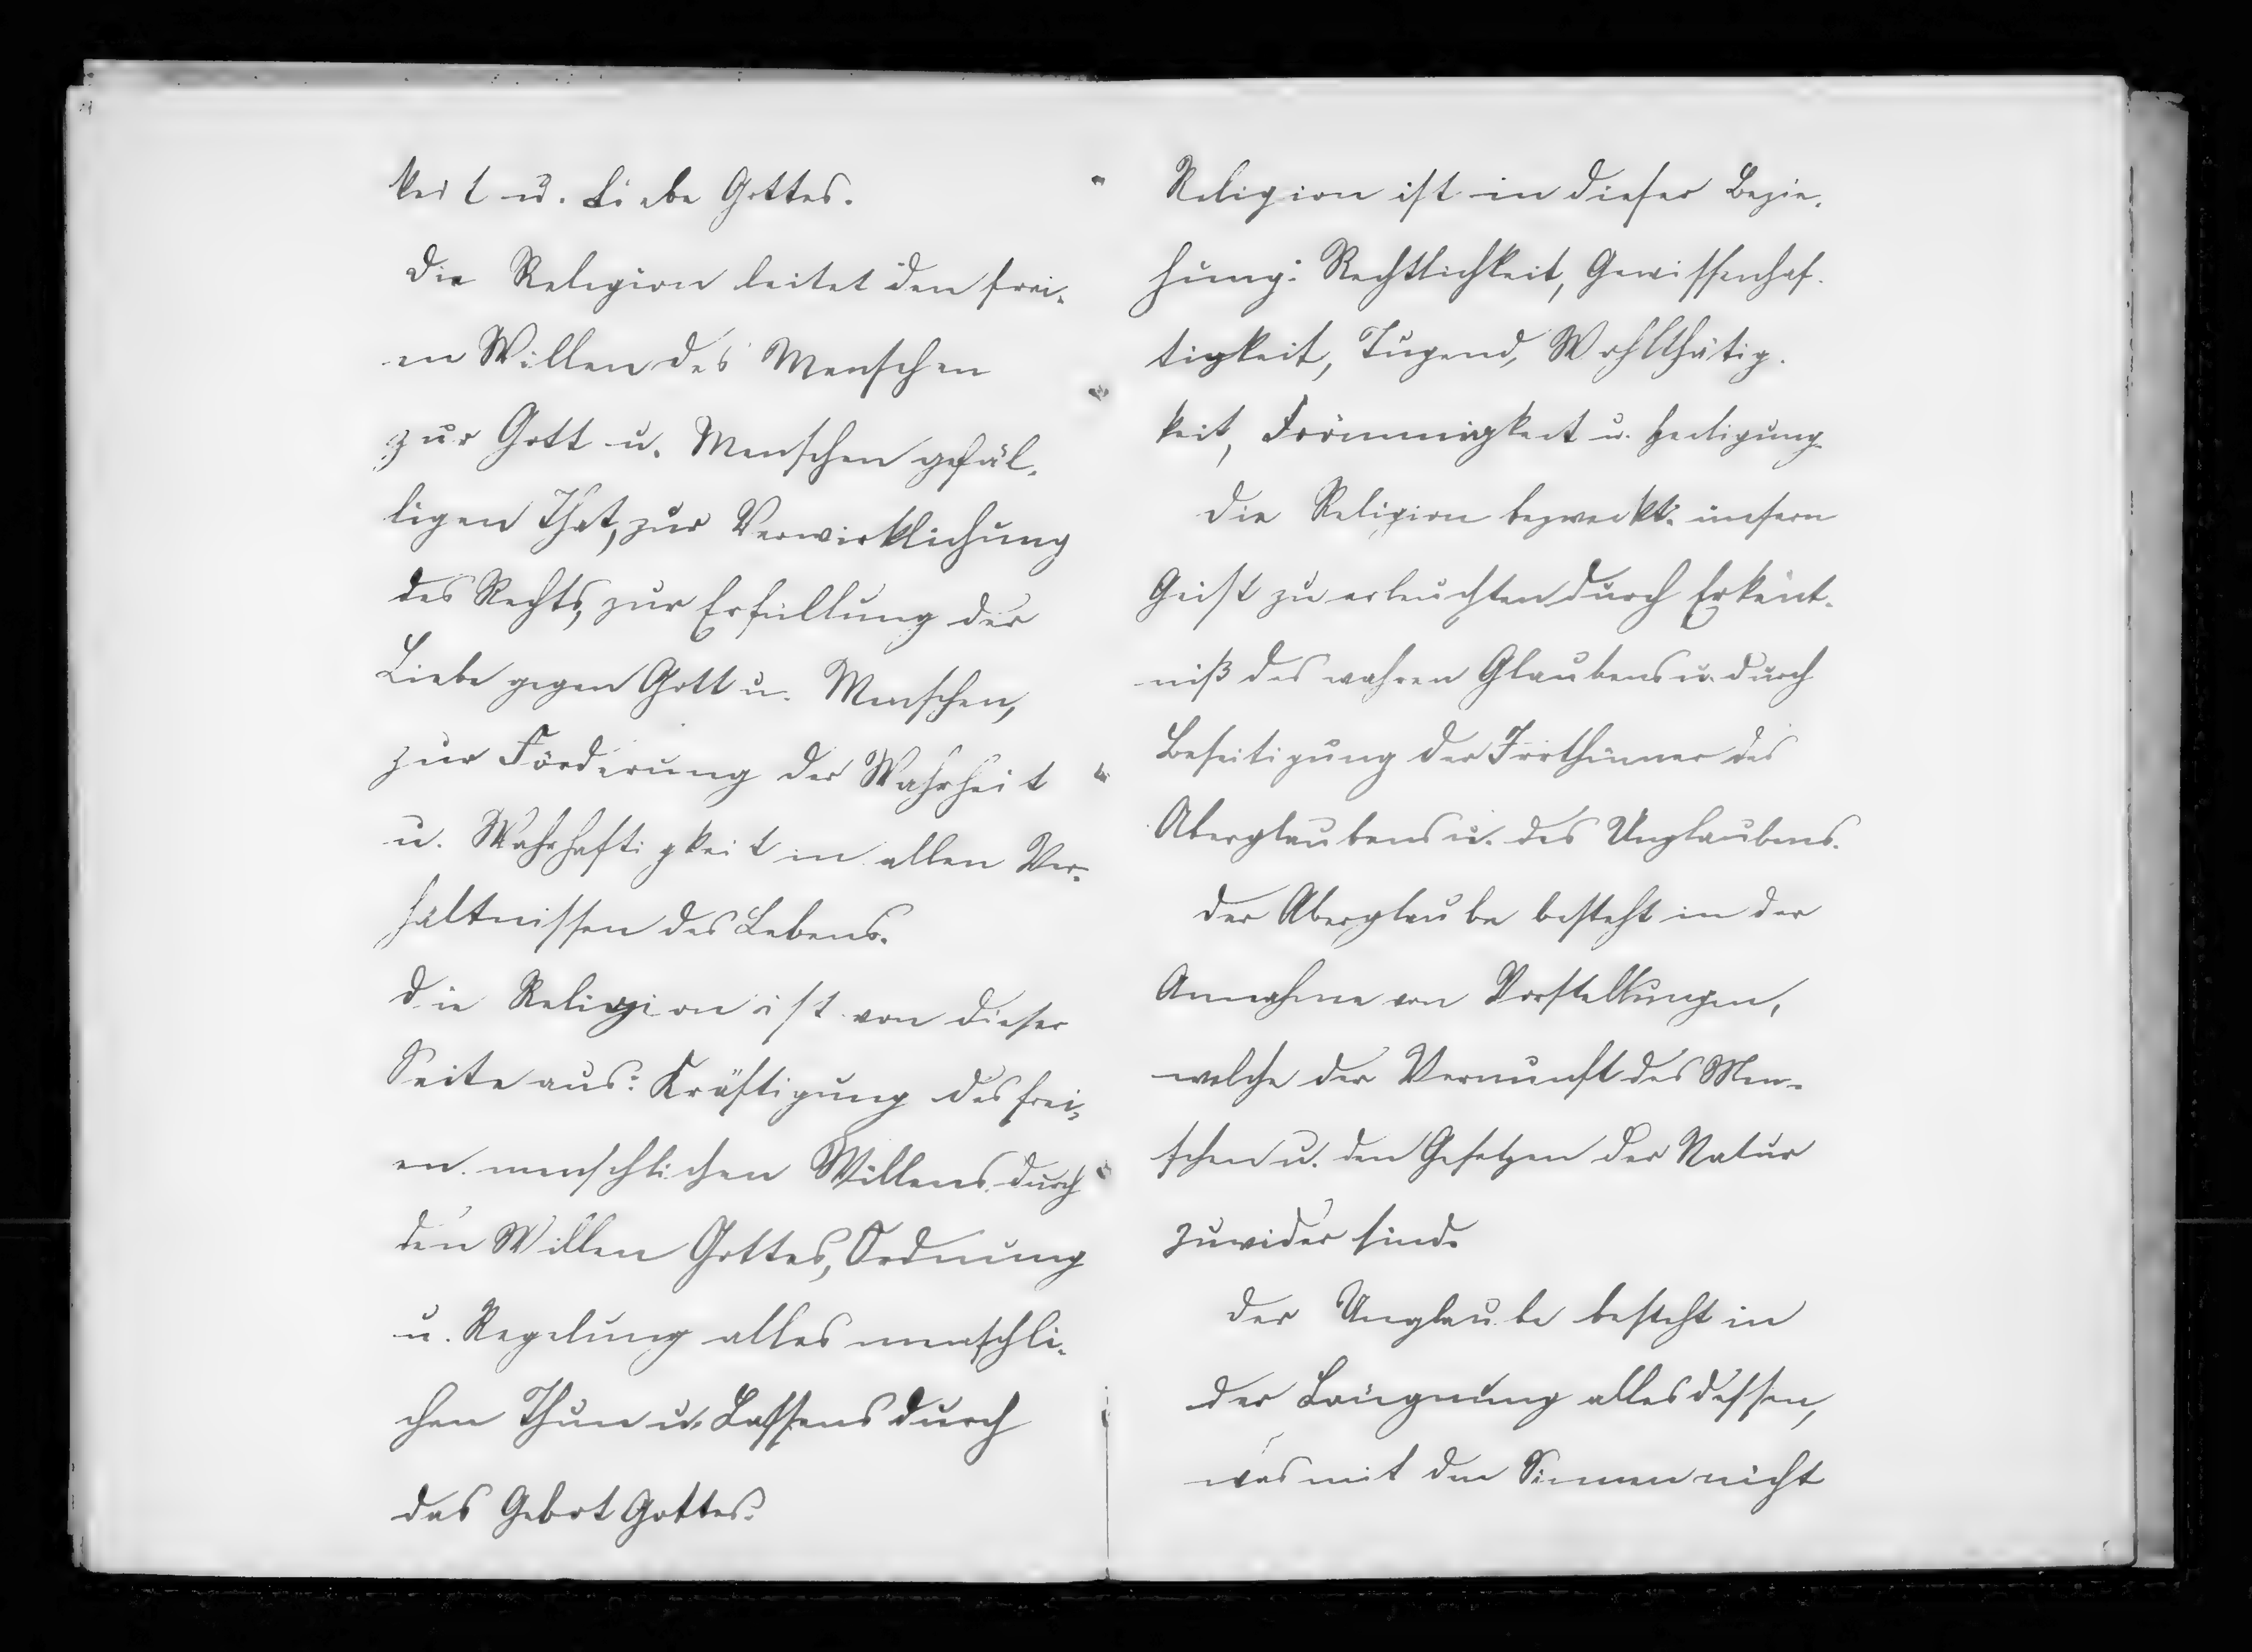 keit u. Liebe Gottes.
Die Religion leitet den frei-
en Willen des Menschen
zur Gott u. Menschen gefäl-
ligen That, zur Verwirklichung
des Rechts, zur Erfüllung der
Liebe gegen Gott u. Menschen,
zur Förderung der Wahrheit
u. Wahrhaftigkeit in allen Ver-
hältnissen des Lebens.
Die Religion ist von dieser
Seite aus: Kräftigung des frei-
en menschlichen Willens durch
den Willen Gottes, Ordnung
u. Regelung alles menschli-
chen Thun u. Lassens durch
das Gebot Gottes.
Religion ist in dieser Bezie-
hung: Rechtlichkeit, Gewissenhaf-
tigkeit, Tugend, Wohlthätig-
keit, Frömmigkeit u. Heiligung.
Die Religion bezweckt: unsern
Geist zu erleuchten durch Erkent-
niß des wahren Glaubens u. durch
Beseitigung der Irrthümer des
Aberglaubens u. des Unglaubens.
Der Aberglaube besteht in der
Annahme von Vorstellungen,
welche der Vernunft des Men-
schen u. den Gesetzen der Natur
zuwider sind.
Der Unglaube besteht in
der Läugnung alles dessen,
was mit den Sinnen nicht